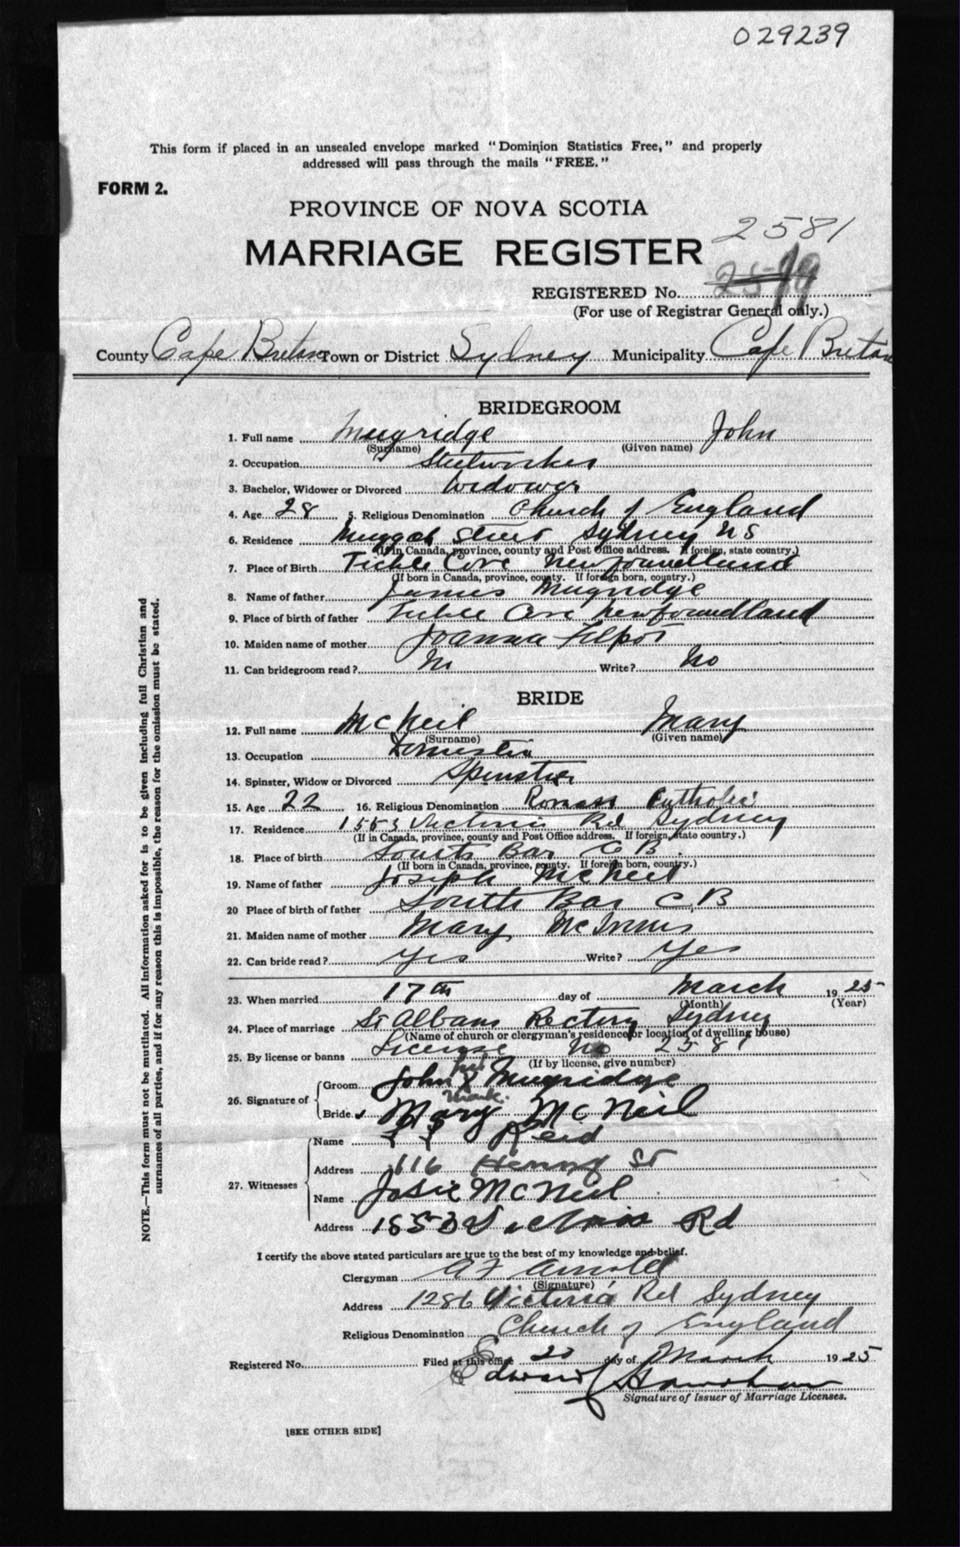 029239
This form if placed in an unsealed envelope marked "Dominion Statistics Free," and properly
addressed will pass through the mails "FREE."
FORM 2.
PROVINCE OF NOVA SCOTIA
2581
MARRIAGE REGISTER
REGISTERED No.
(For use of Registrar General only.)
County Cape Breton Town or District Sydney Municipality Cape Breton
BRIDEGROOM
1. Full name Mugridge John
(Surname) (Given name)
2. Occupation Steelworker
3. Bachelor, Widower or Divorced Widower
4. Age 28 5. Religious Denomination Church of England
6. Residence Muggah Street Sydney NS
(If in Canada, province, county and Post Office address. If foreign, state country.)
7. Place of Birth Tickle Cove Newfoundland
(If born in Canada, province, county. If foreign born, country.)
8. Name of father James Mugridge
9. Place of birth of father Tickle Cove Newfoundland
10. Maiden name of mother Joanna Filpot
11. Can bridegroom read? No Write? No
BRIDE
12. Full name McNeil Mary
(Surname) (Given name)
13. Occupation Domestic
14. Spinster, Widow or Divorced Spinster
15. Age 22 16. Religious Denomination Roman Catholic
17. Residence 1553 Victoria Rd Sydney
(If in Canada, province, county and Post Office address. If foreign, state country.)
18. Place of birth South Bar C B.
(If born in Canada, province, county. If foreign born, country.)
19. Name of father Joseph McNeil
20 Place of birth of father South Bar C.B
21. Maiden name of mother Mary McInnis
22. Can bride read? Yes Write? Yes
23. When married 17th day of March 1925
(Month) (Year)
24. Place of marriage St Albans Rectory Sydney
(Name of church or clergyman's residence or location of dwelling house)
25. By license or banns License No 2581
(If by license, give number)
his
26. Signature of Groom John X Mugridge
mark.
Bride Mary McNeil
27. Witnesses Name Reid
Address 116 Henry St
Name Josie McNeil
Address 1553 Victoria Rd
I certify the above stated particulars are true to the best of my knowledge and belief.
Clergyman A F Arnold
(Signature)
Address 1286 Victoria Rd Sydney
Religious Denomination Church of England
Registered No. Filed at this office 20 day of March 1925
Edward
Signature of Issuer of Marriage Licenses.
[SEE OTHER SIDE]
NOTE.—This form must not be mutilated. All information asked for is to be given including full Christian and
surnames of all parties, and if for any reason this is impossible, the reason for the omission must be stated.